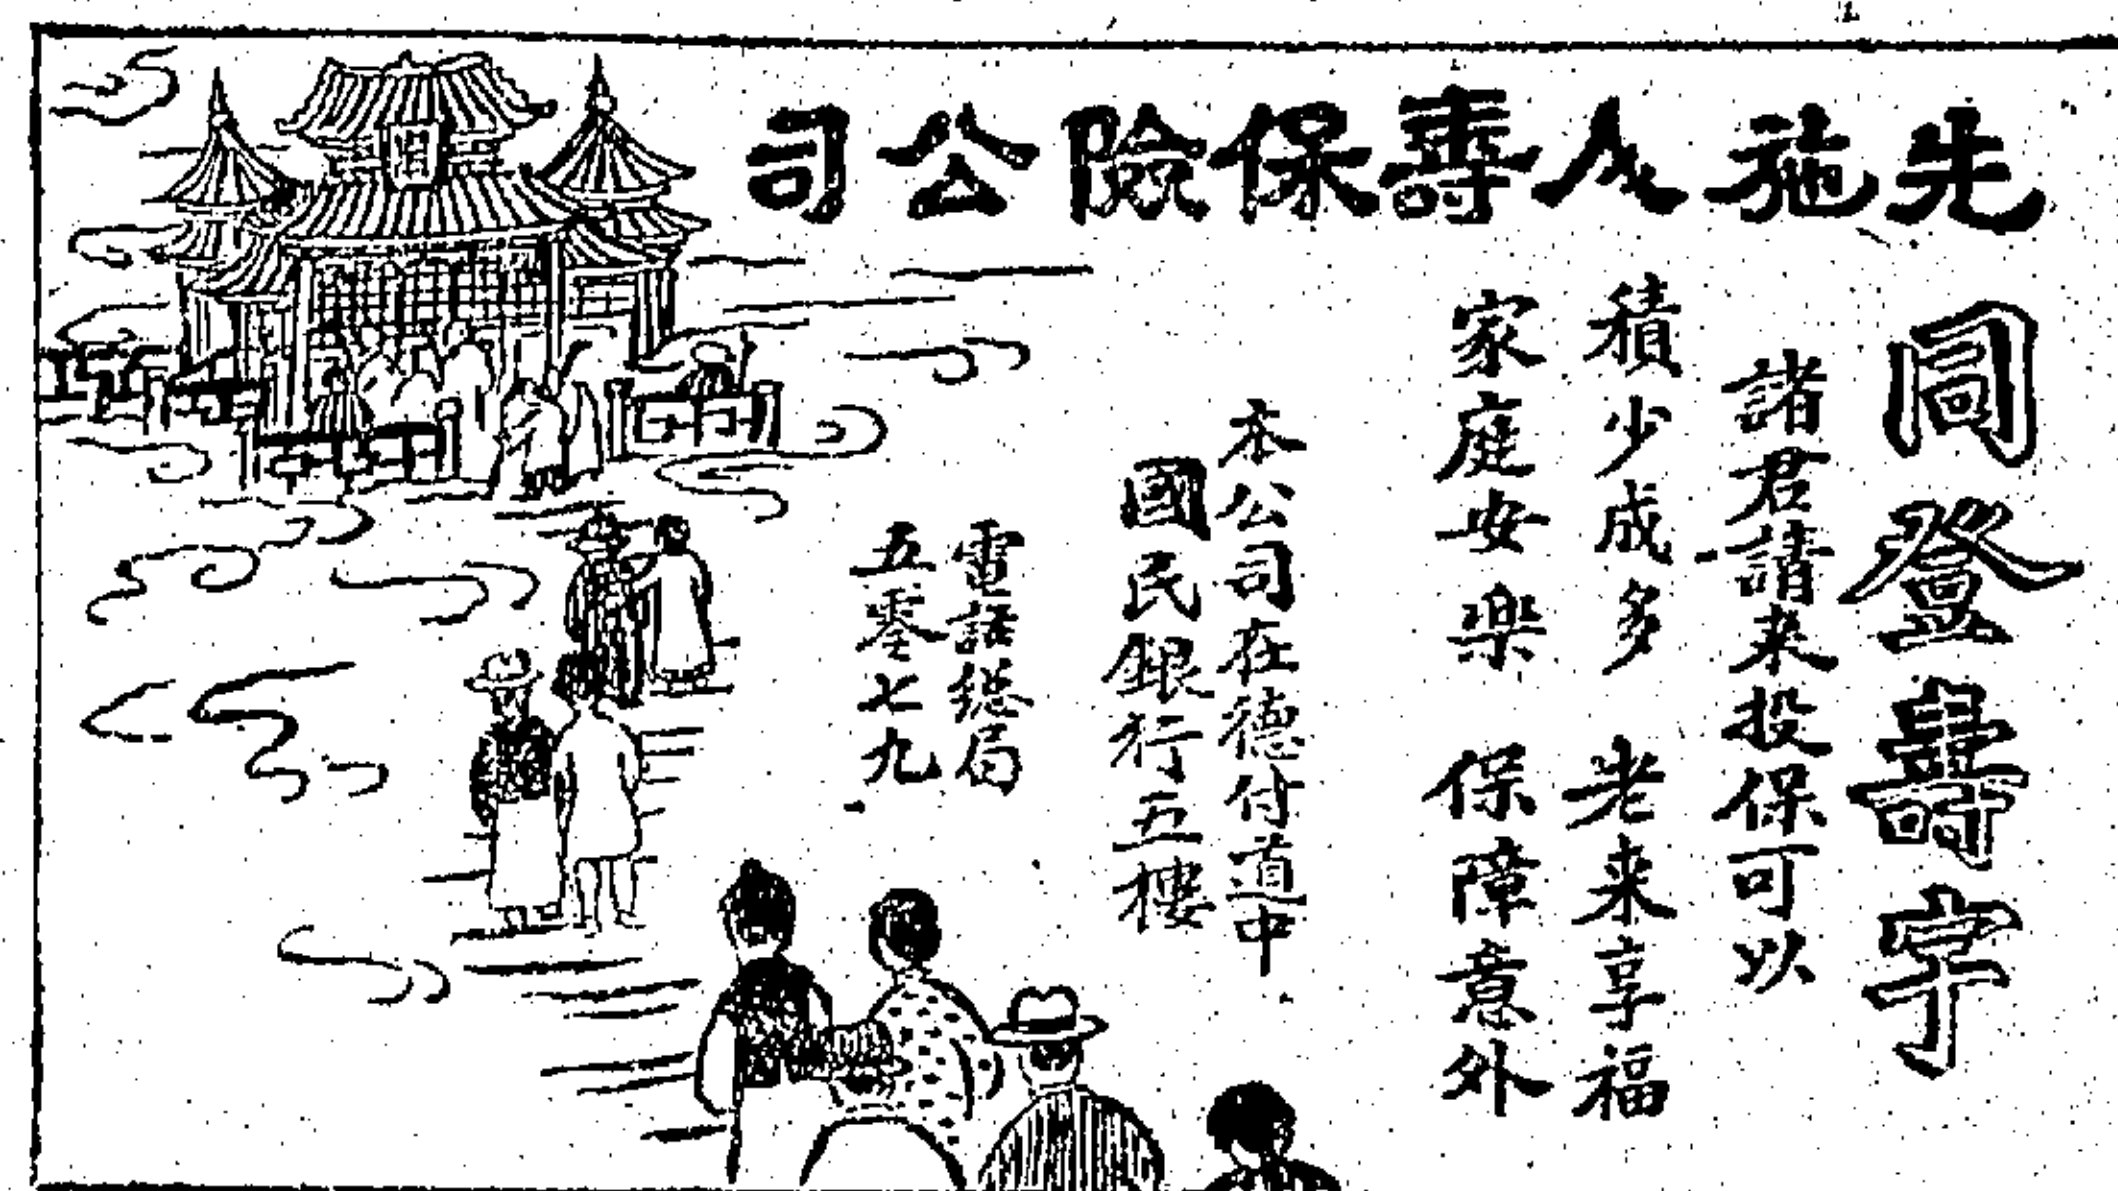 先施人壽保險公司
同登壽宇
諸君請来投保可以
積少成多 老来享福
家庭安樂 保障意外
本公司在德付道中
國民銀行五樓
電話總局
五零七九